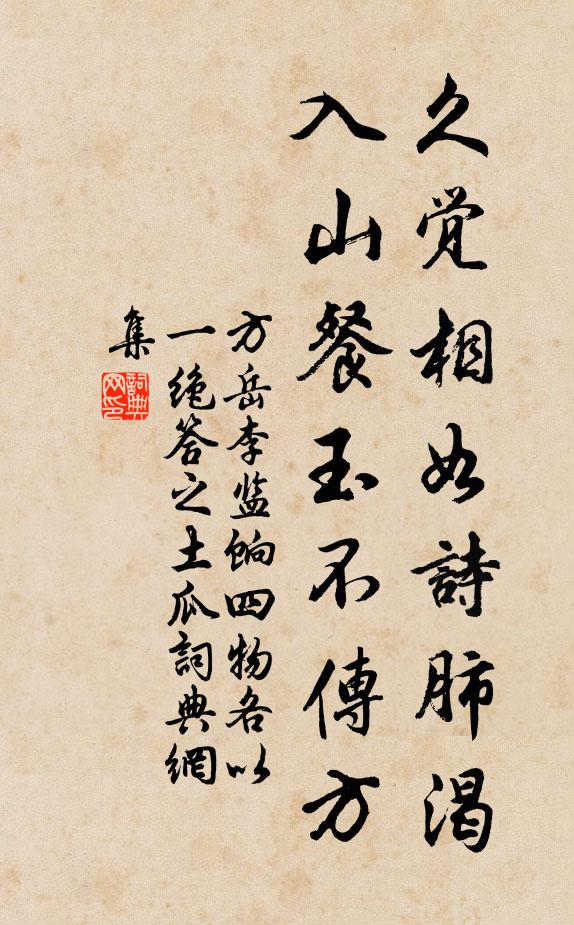 久觉相如詩肺渴
入山餐玉不傳方
方岳李监饷四物各以
一绝答之土瓜詞典網
集
詞典
网印